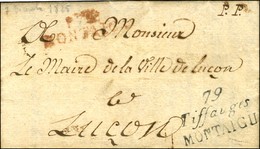 P.P.
A Monsieur
Le Maire de la Ville de Luçon
à
LUÇON
79
Tiffauges
MONTAIGU